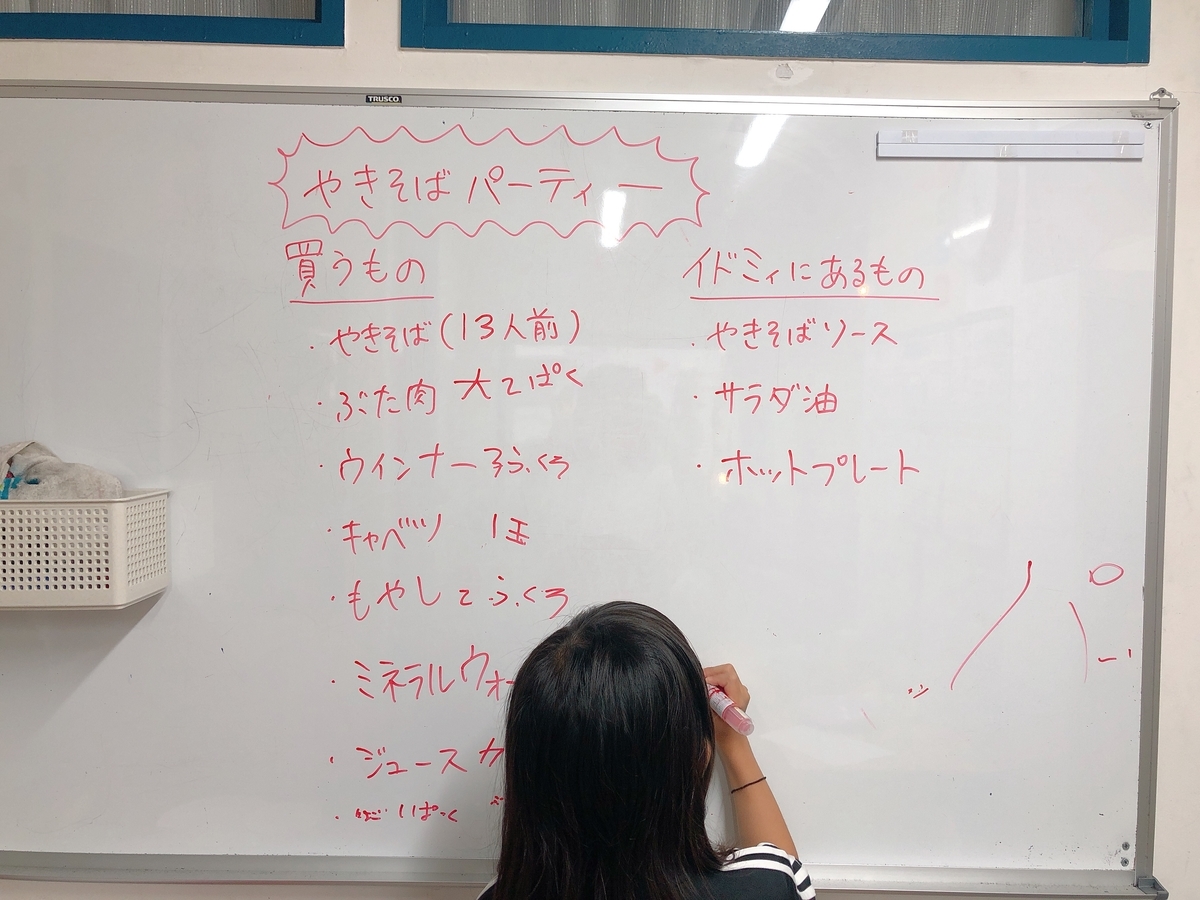 TRUSCO
やきそばパーティー
買うもの
・やきそば(13人前)
・ぶた肉 大2ぱく
・ウインナー3ふくろ
・キャベツ 1玉
・もやし2ふくろ
・ミネラルウォー
・ジュース
1ぱっく
イドミィにあるもの
・やきそばソース
・サラダ油
・ホットプレート